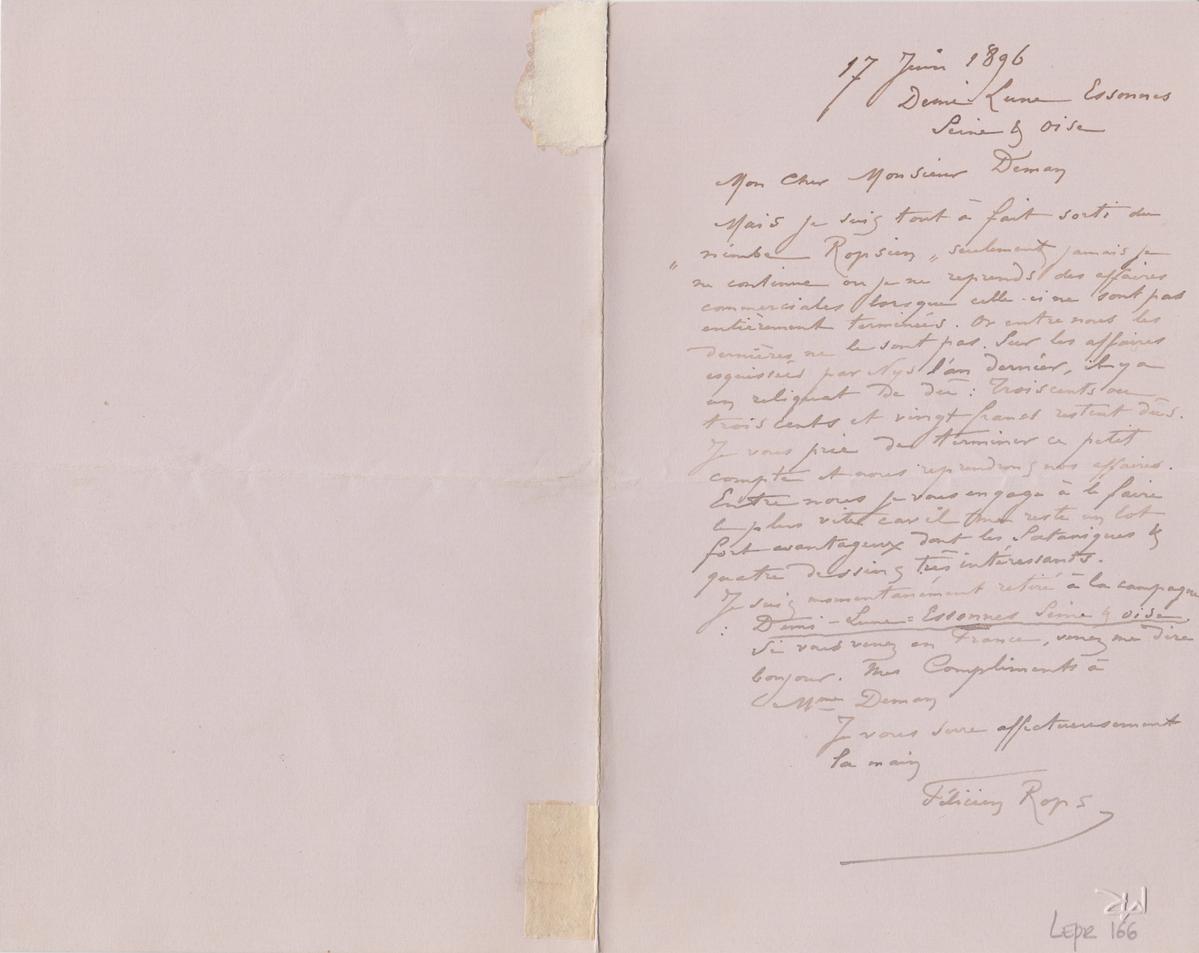 17 Juin 1896
Demi-Lune Essonnes
Seine & Oise
Mon Cher Monsieur Deman
Mais je suis tout à fait sorti du
" nimbe Ropsien „ seulement jamais je
ne continue ou je ne reprends des affaires
commerciales lorsque celle-ci ne sont pas
entièrement terminées. Or entre nous les
dernières ne le sont pas. Sur les affaires
esquissées par Nys l'an dernier, il y a
un reliquat de dû : Trois cents ou
trois cents et vingt francs restent dûs.
Je vous prie de terminer ce petit
compte et nous reprendrons nos affaires.
Entre nous je vous engage à le faire
le plus vite car il me reste un lot
fort avantageux dont les Sataniques &
quatre dessins très intéressants.
Je suis momentanément retiré à la campagne
: Demi-Lune=Essonnes Seine & Oise.
Si vous venez en France, venez me dire
bonjour. Mes Compliments à
Mme Deman
Je vous serre affectueusement
la main
Félicien Rops
LEpr 166